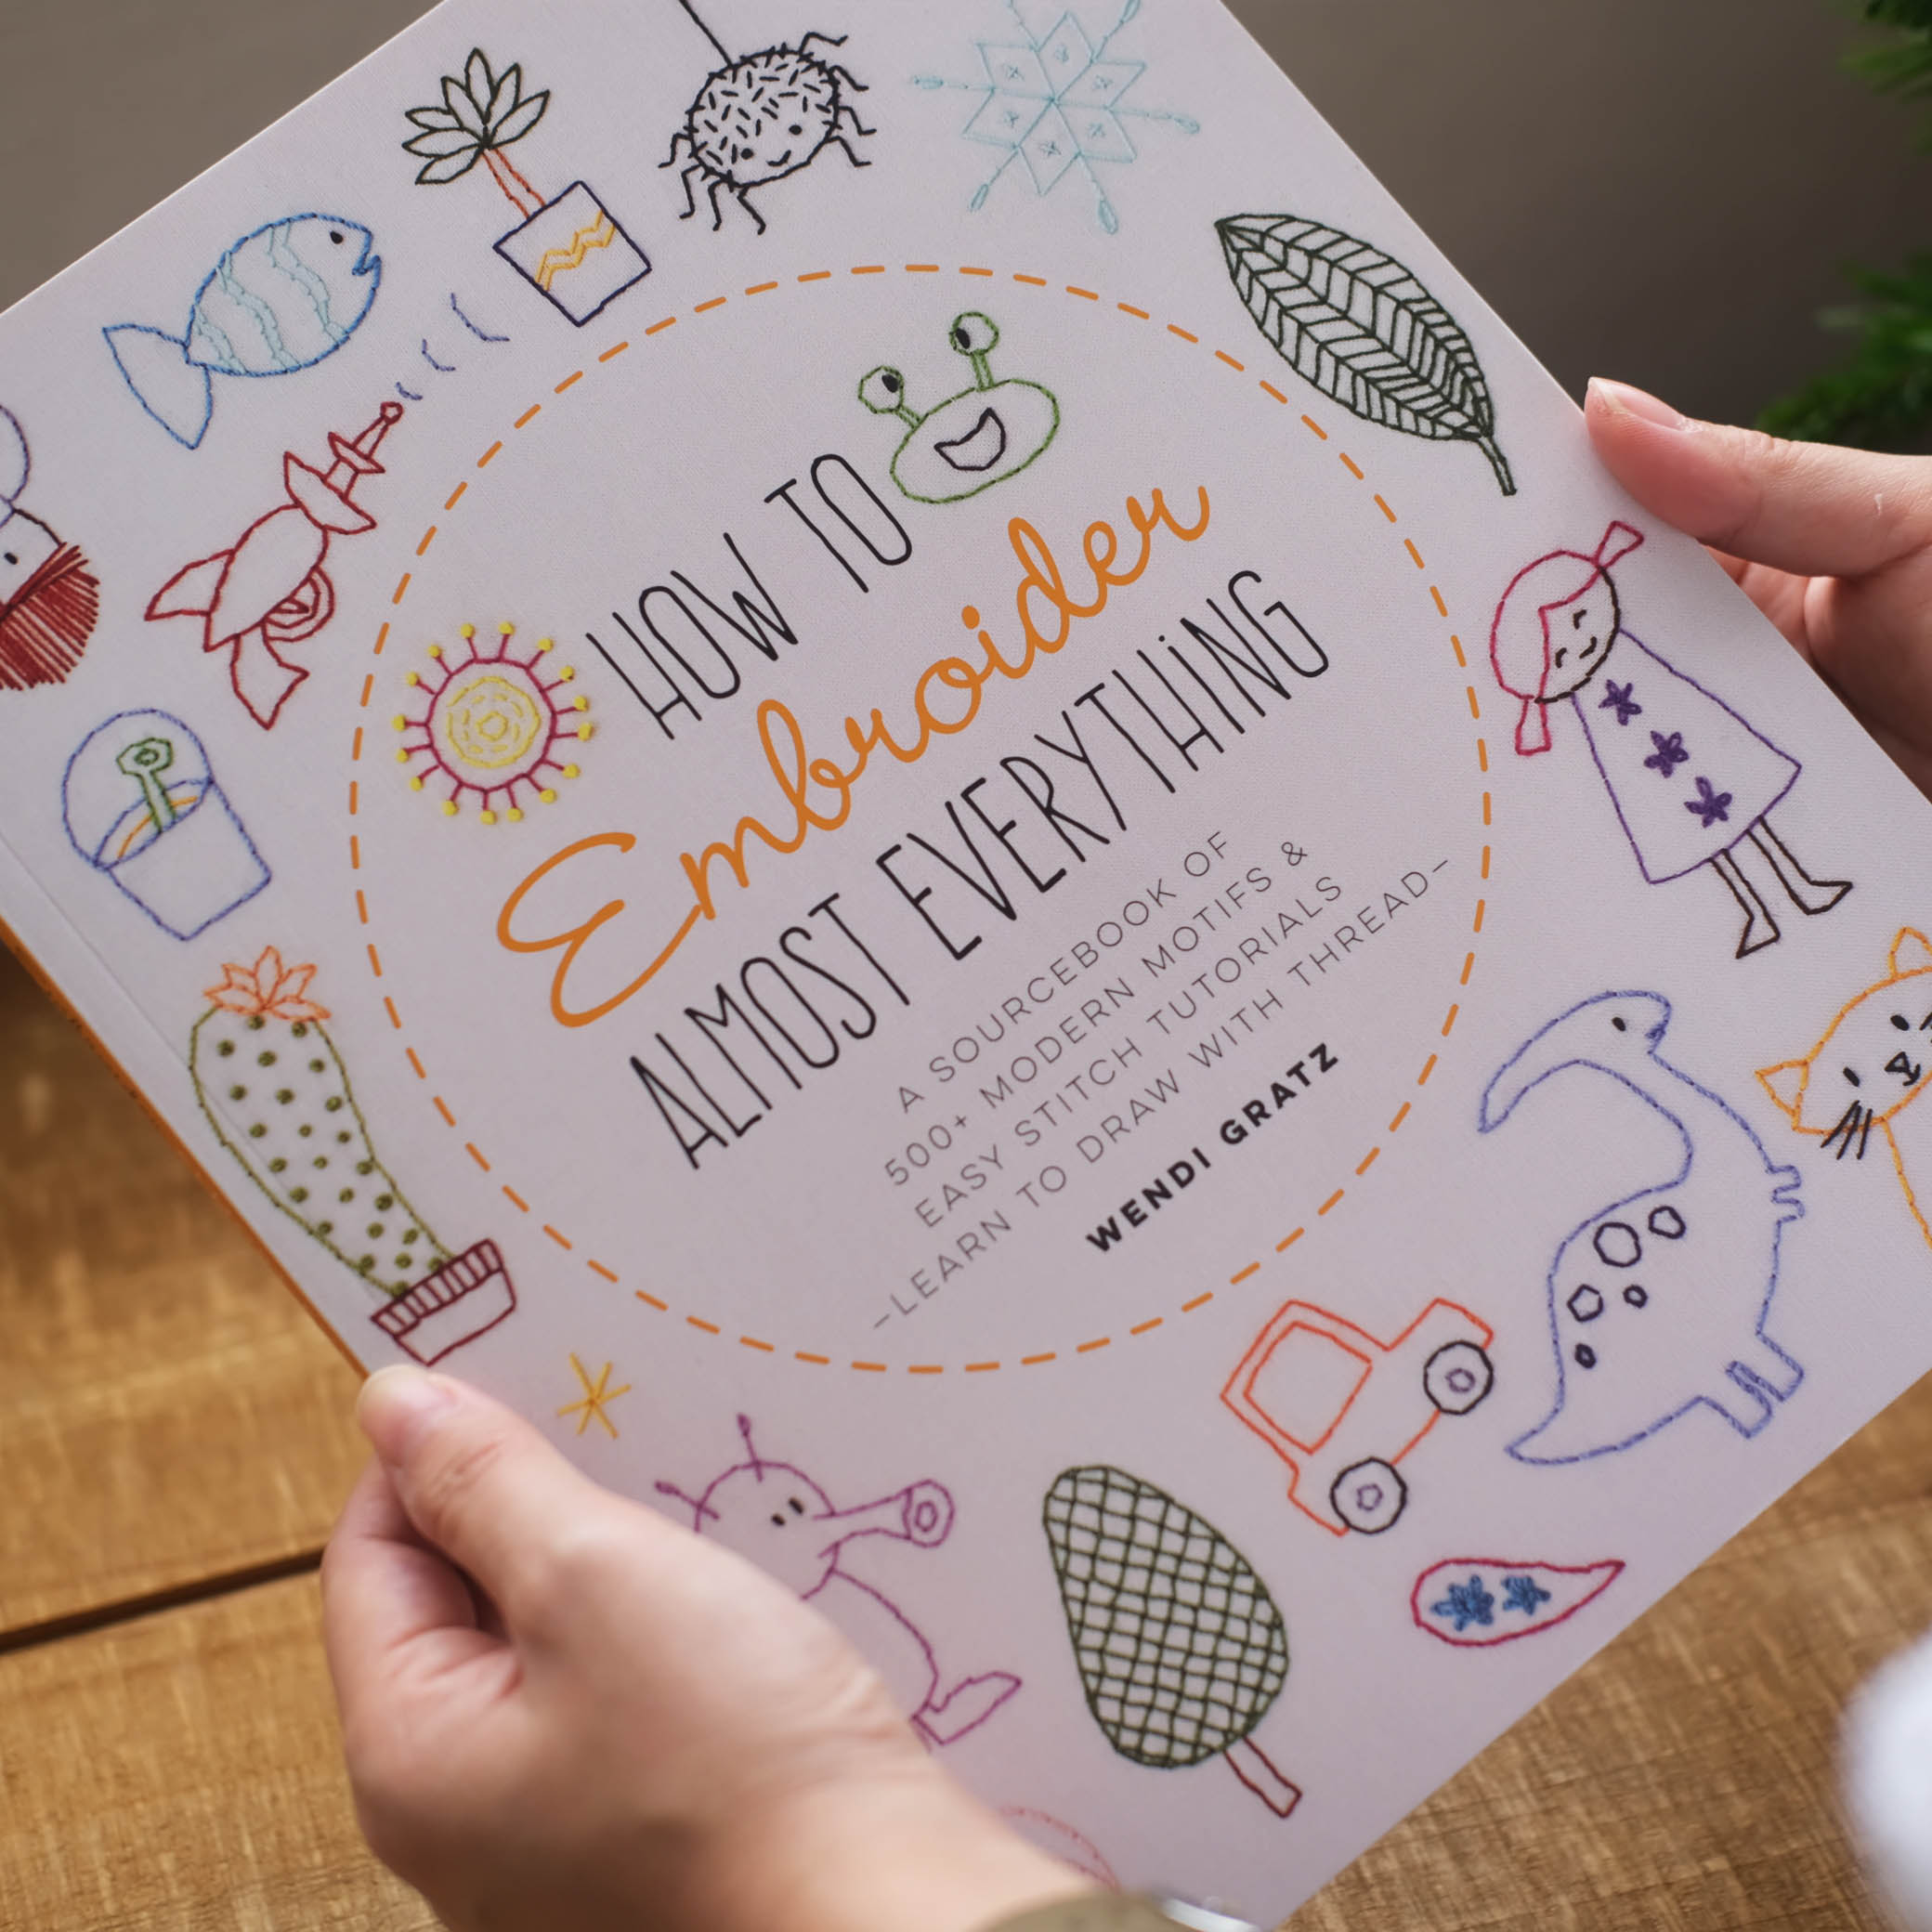 HOW TO
Embroider
ALMOST EVERYTHING
A SOURCEBOOK OF
500+ MODERN MOTIFS &
EASY STITCH TUTORIALS
–LEARN TO DRAW WITH THREAD–
WENDI GRATZ